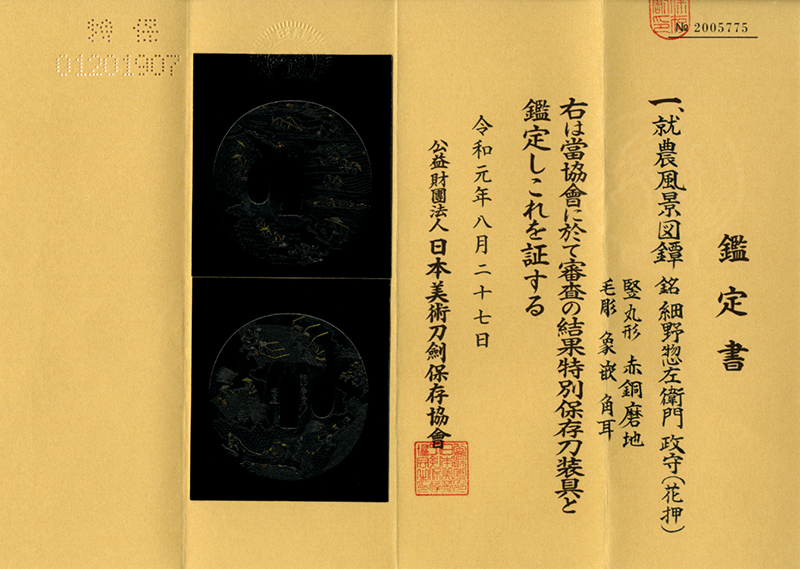 № 2005775
鑑定書
一、就農風景図鐔 銘 細野惣左衛門 政守(花押)
竪丸形 赤銅磨地
毛彫 象嵌 角耳
右は當協會に於て審査の結果特別保存刀装具と
鑑定しこれを証する
令和元年八月二十七日
公益財團法人 日本美術刀劍保存協會
特 保
01201907